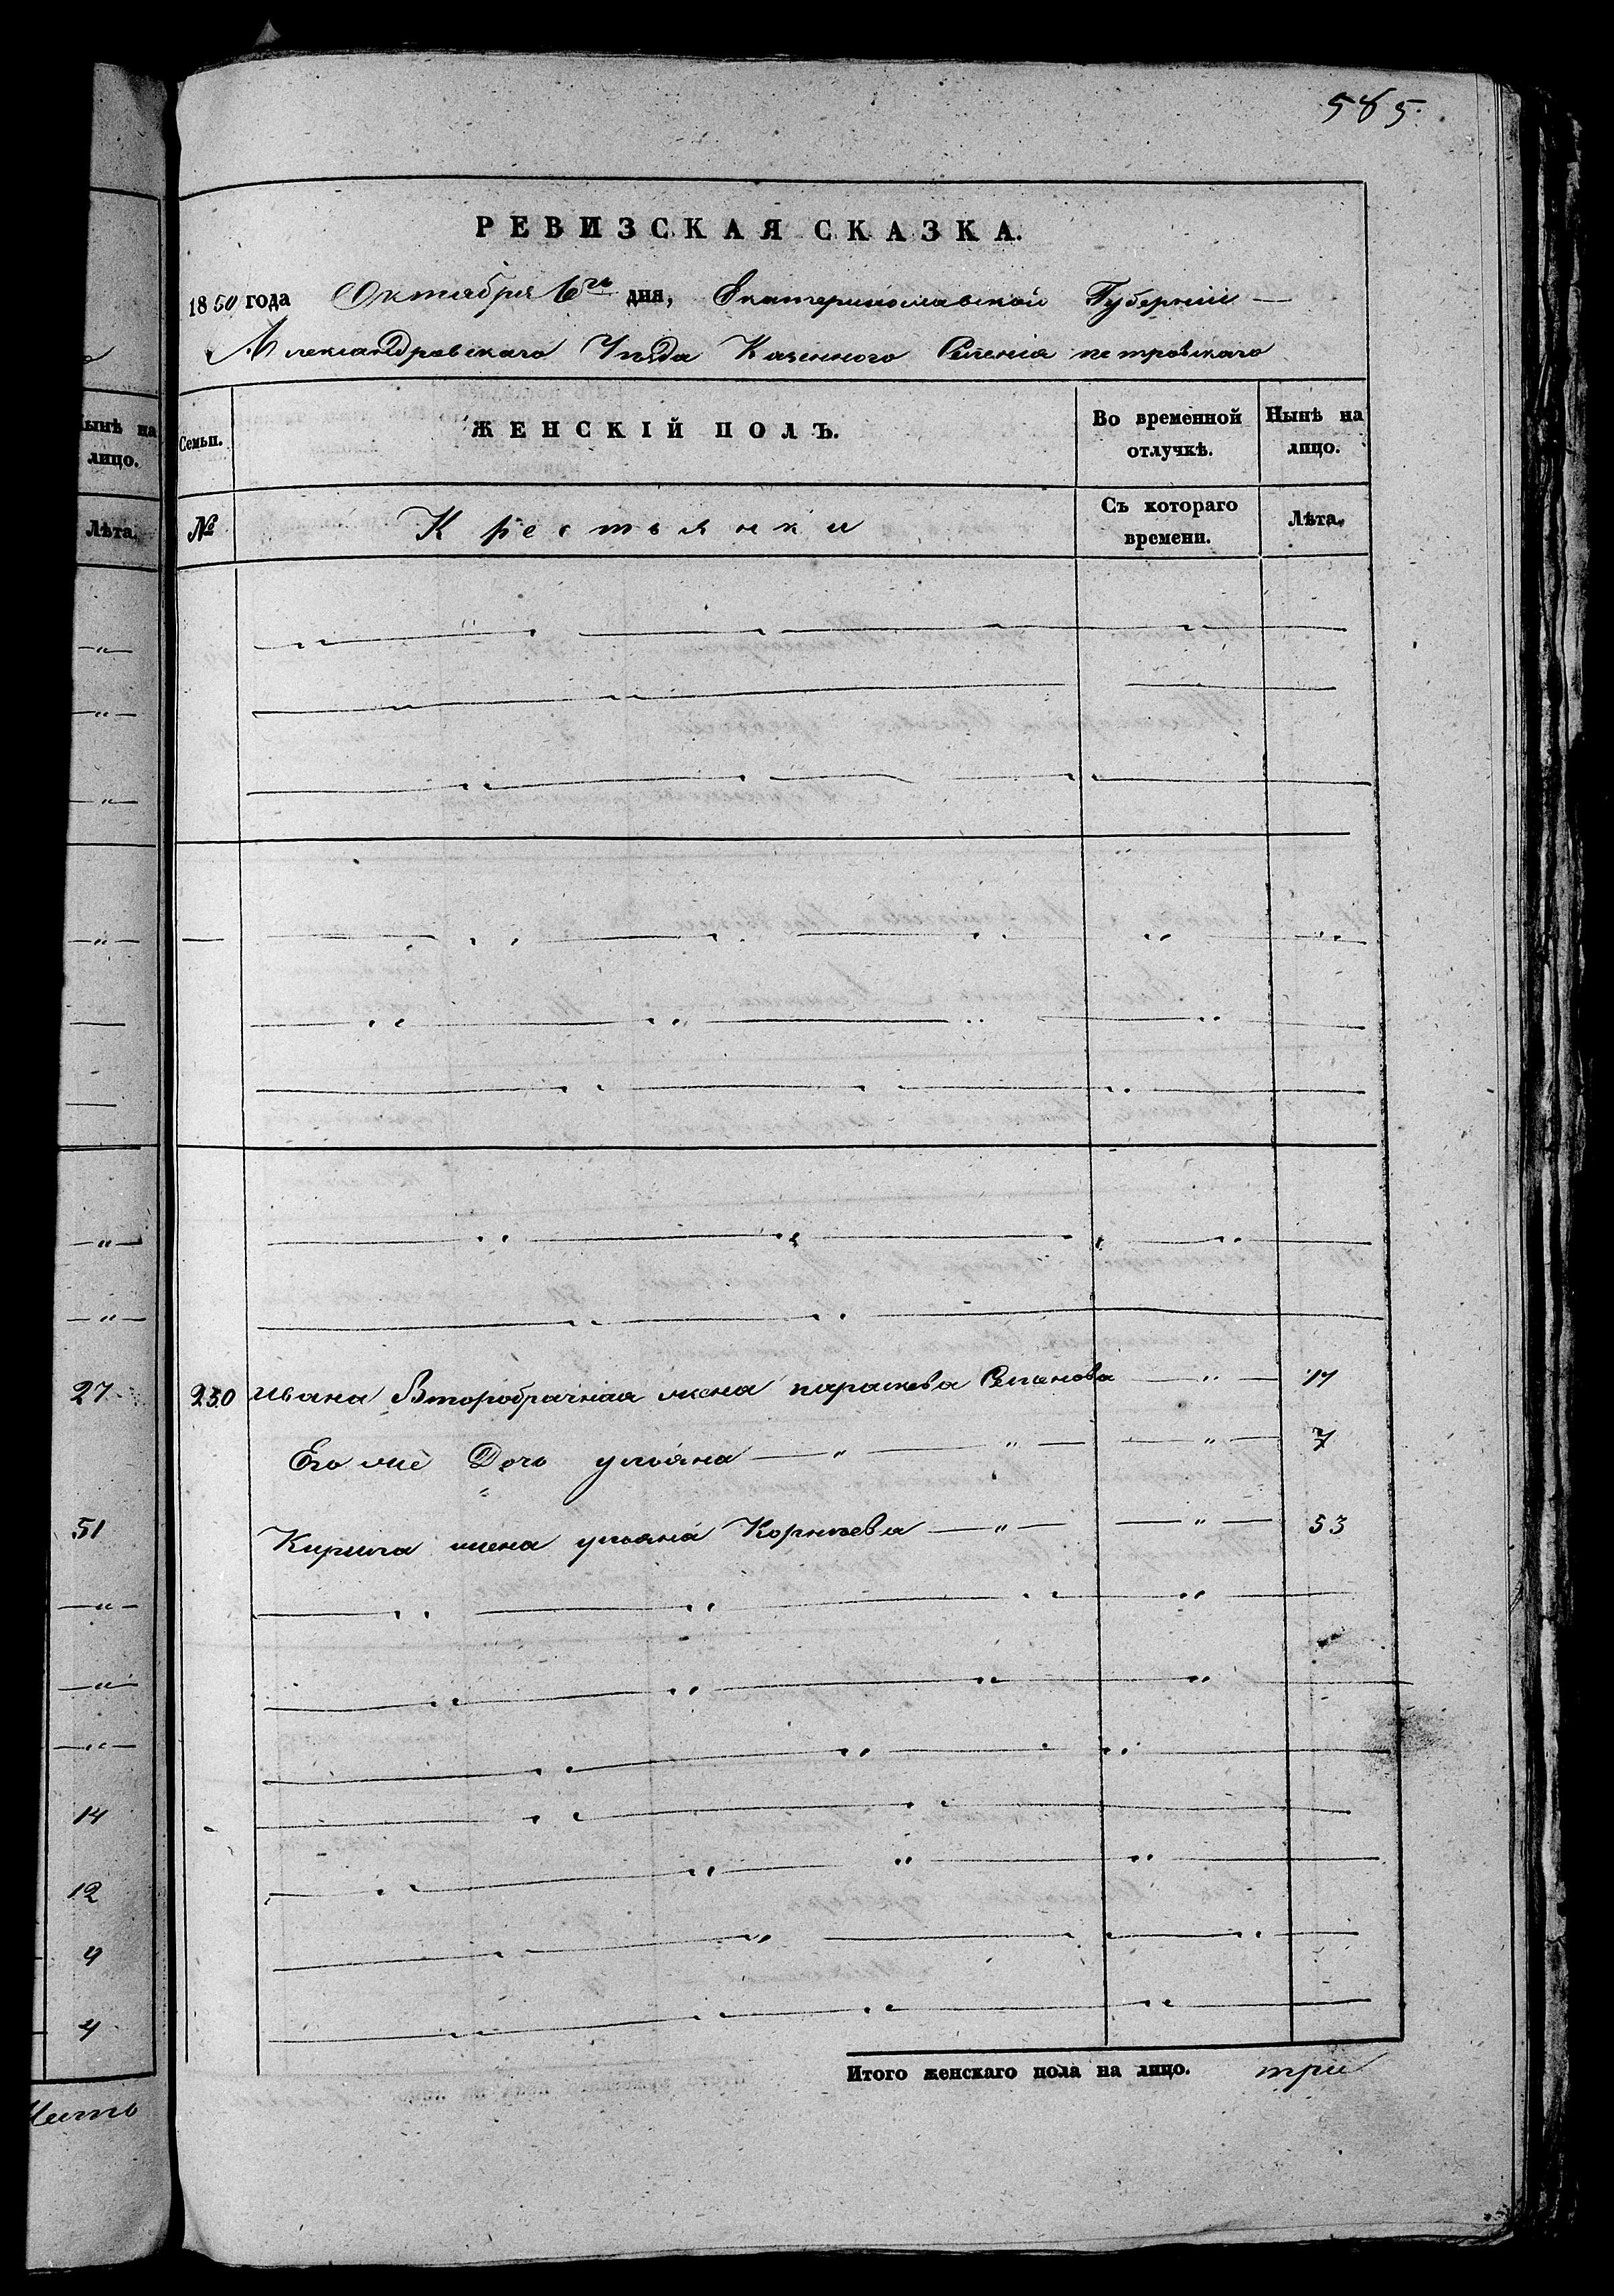 585.
РЕВИЗСКАЯ СКАЗКА.
1850 года Октября 6го дня, Екатеринославской Губернии
Александровскаго Уезда Казенного Селенія петровскаго
Нынѣ на лицо.
Семьи. ЖЕНСКІЙ ПОЛЪ. Во временной отлучкѣ. Нынѣ на лицо.
Лѣта.
№ Крестьянки Съ котораго времени. Лѣта.
27 250 Ивана Второбрачная жена параскева — " — 
Его же Дочь ульяна — " — " — — " — 7
51 Кирила жена ульяна Корнѣева — " — — " — 53
14
12
4
4
Итого женскаго пола на лицо. три